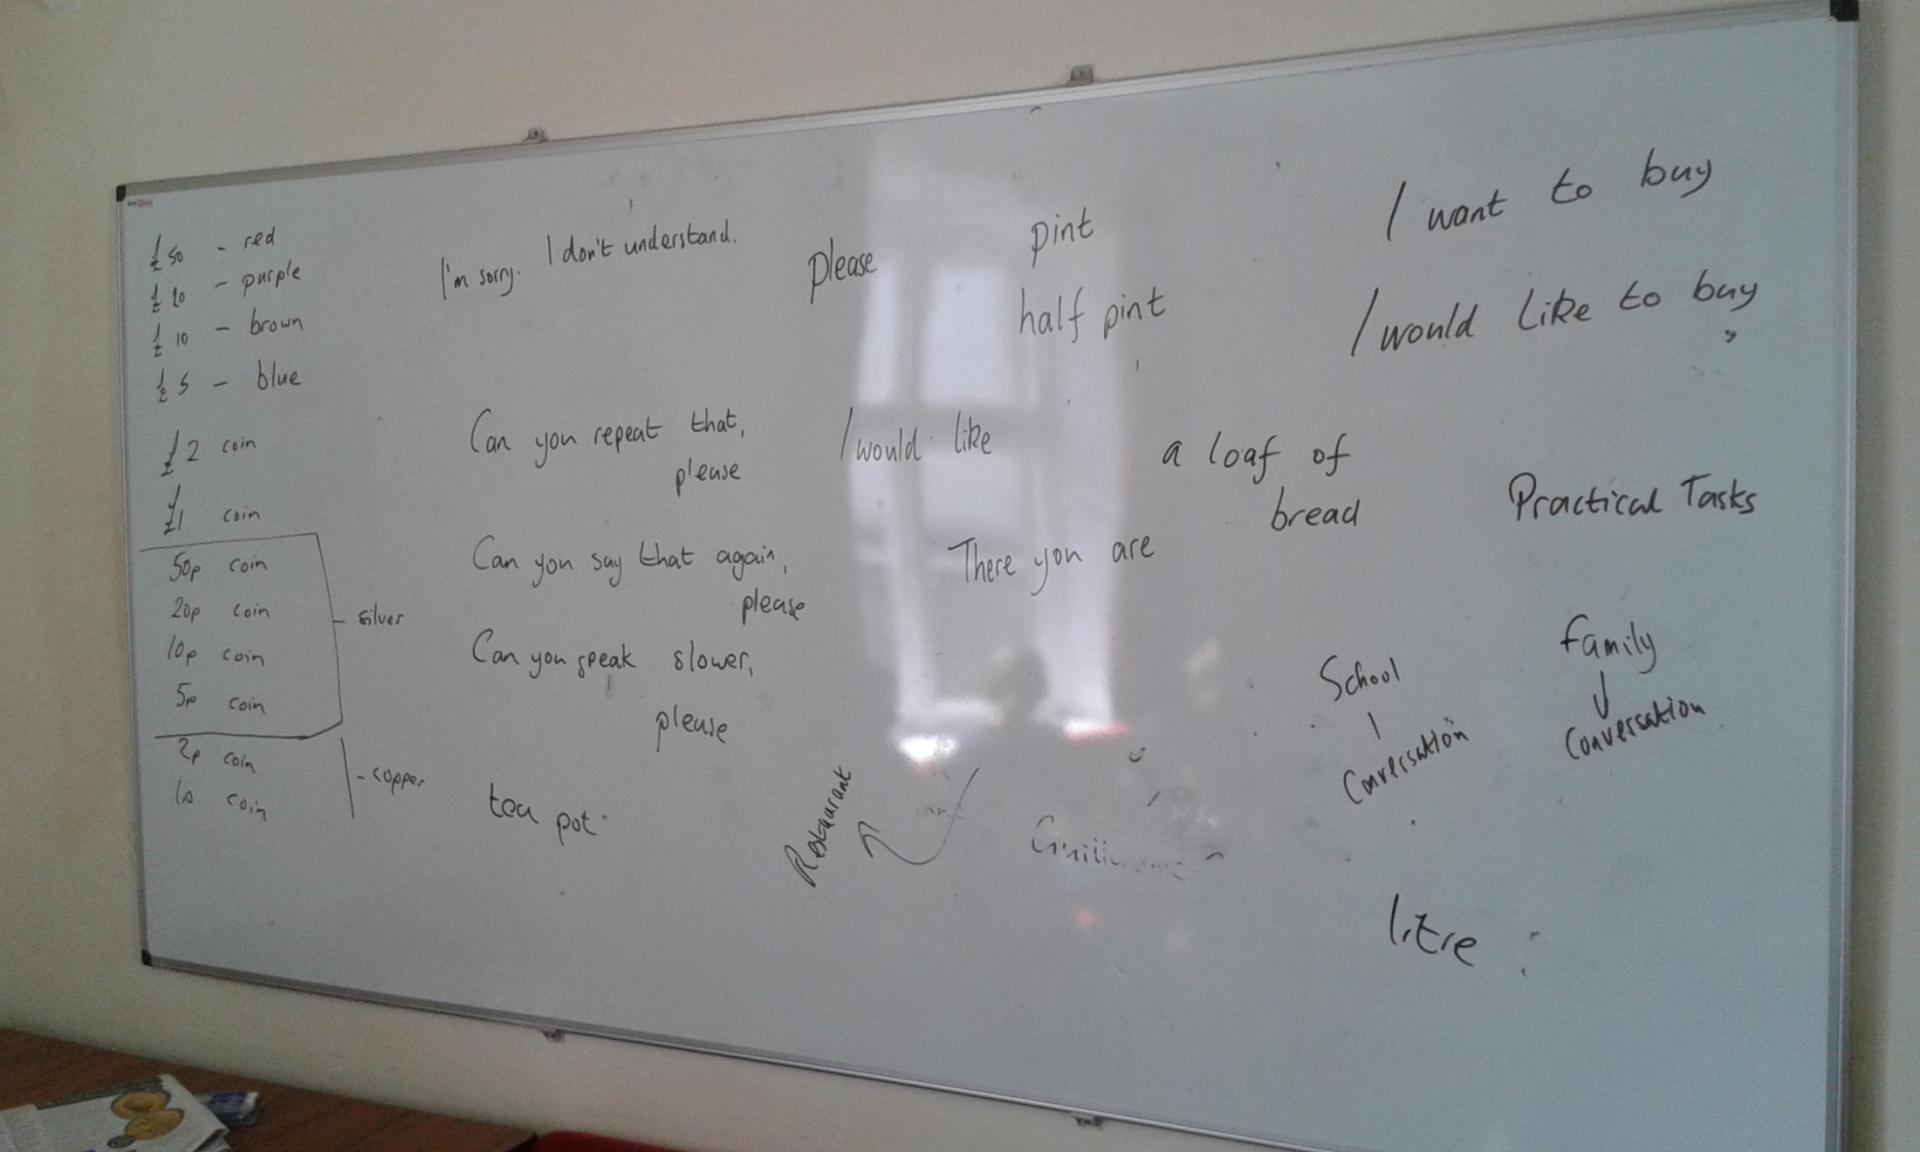 £50 - red
£20 - purple
£10 - brown
£5 - blue
£2 coin
£1 coin
50p coin
20p coin
10p coin
5p coin
silver
2p coin
1p coin
- copper
I'm sorry. I don't understand.
Can you repeat that,
please
Can you say that again,
please
Can you speak slower,
please
tea pot
please
pint
half pint
I would like
a loaf of
bread
There you are
Restaurant
I want to buy
I would like to buy
Practical Tasks
School
Conversation
Family
Conversation
litre